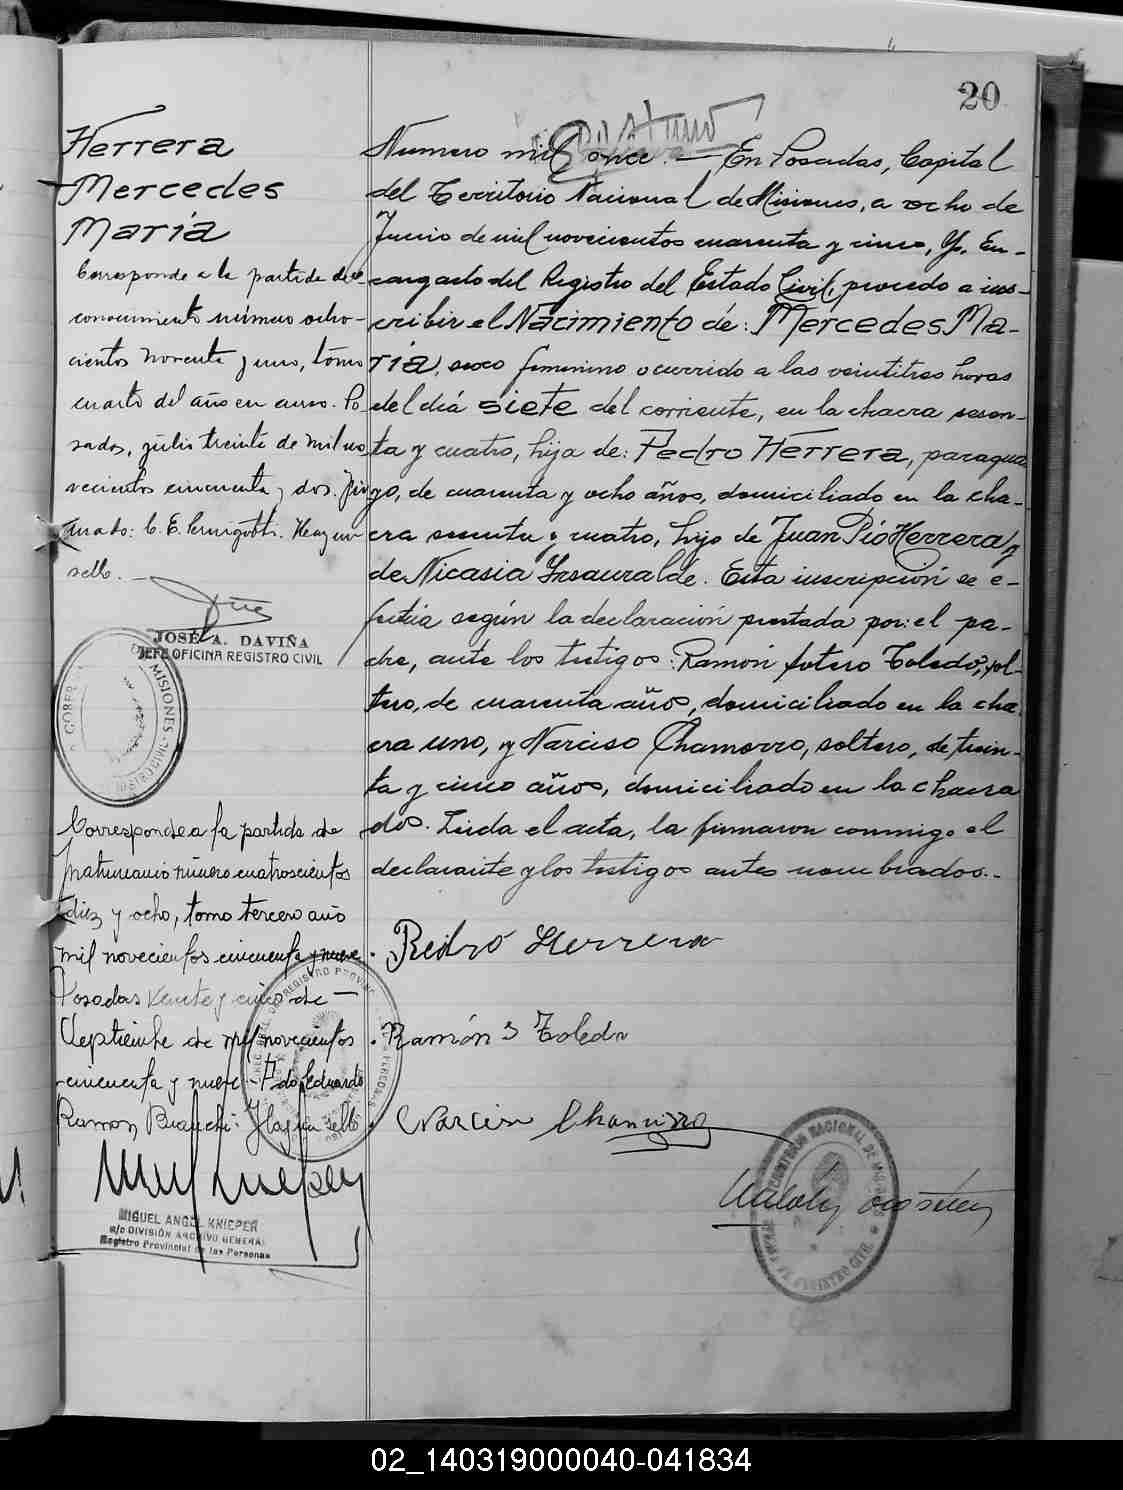 20
Herrera
Mercedes
María
Corresponde a la partida de re-
conocimiento número ocho-
cientos noventa y uno, tomo
cuarto del año en curso. Po-
sadas, julio treinta de mil no-
vecientos cincuenta y dos. Fir-
mado: C. E. Hay un
sello.
JOSÉ A. DAVIÑA
JEFE OFICINA REGISTRO CIVIL
MISIONES
Corresponde a la partida de
matrimonio número cuatroscientos
diez y ocho, tomo tercero año
mil novecientos cincuenta y nueve.
Posadas veinte y cinco de
Septiembre de mil novecientos
cincuenta y nueve - Fdo. Eduardo
Ramon Bianchi: Hay un sello.
MIGUEL ANGEL KNIEPER
a/c DIVISIÓN ARCHIVO GENERAL
Registro Provincial de las Personas
Numero mil once. — En Posadas, Capital
del Territorio Nacional de Misiones, a ocho de
Junio de mil novecientos cuarenta y cinco, Yo, En-
cargado del Registro del Estado Civil, procedo a ins-
cribir el Nacimiento de: Mercedes Ma-
ría, sexo femenino ocurrido a las veintitres horas
del día siete del corriente, en la chacra sesen-
ta y cuatro, hija de: Pedro Herrera, paragua-
yo, de cuarenta y ocho años, domiciliado en la cha-
cra sesenta y cuatro, hijo de Juan Pio Herrera, y
de Nicasia Ysaurralde. Esta inscripción se e-
fectúa según la declaración prestada por: el pa-
dre, ante los testigos: Ramón Sotero Toledo, sol-
tero, de cuarenta años, domiciliado en la cha-
cra uno, y Narciso Chamorro, soltero, de trein-
ta y cinco años, domiciliado en la chacra
dos. Leida el acta, la firmaron conmigo el
declarante y los testigos antes nombrados.-
Pedro Herrera
Ramón S Toledo
Narciso Chamorro
TERRITORIO NACIONAL DE MISIONES
REGISTRO CIVIL
02_140319000040-041834